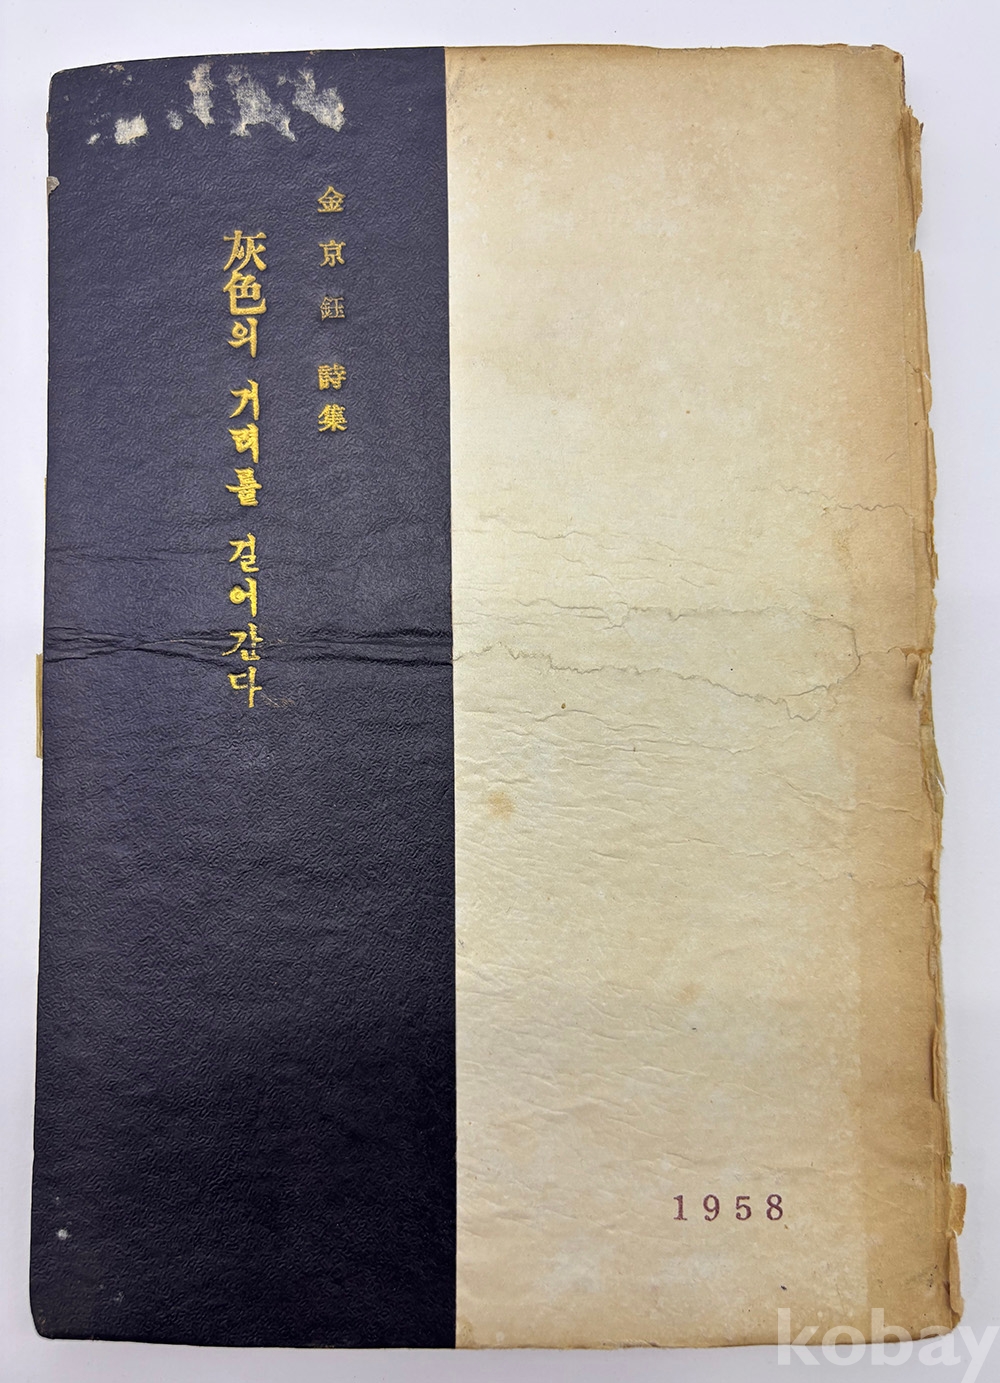 金京鈺 詩集
灰色의 거리를 걸어간다
1958
kobay